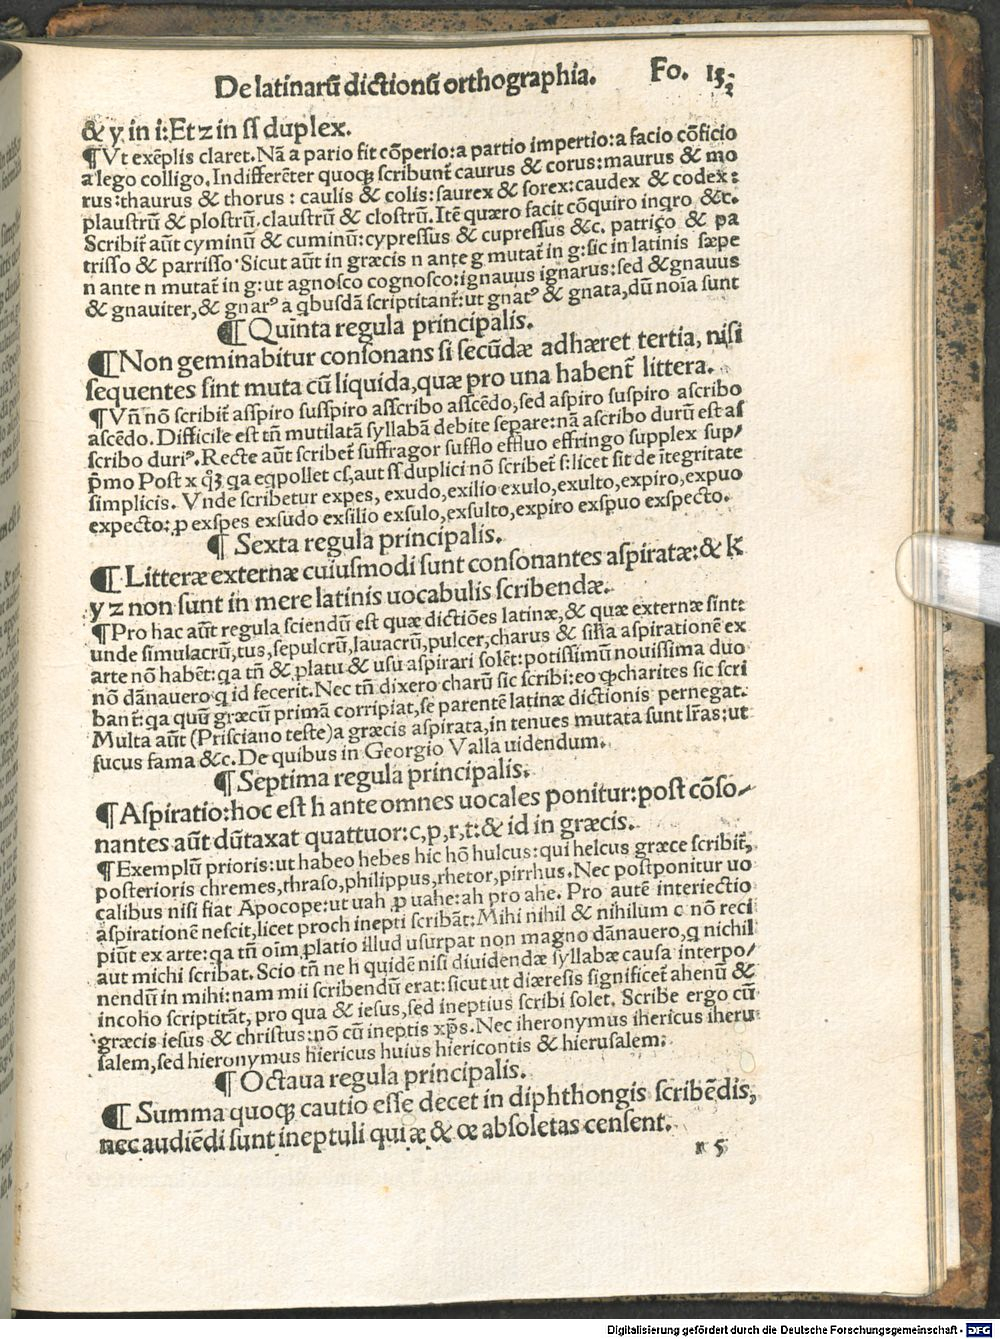 De latinarũ dictionũ orthographia. Fo. 15.
2
& y in i: Et z in ſſ duplex.
¶Vt exẽplis claret. Nã a pario fit cõperio: a partio impertio: a facio cõficio
a lego colligo. Indifferẽter quoqꝫ ſcribunt̃ caurus & corus: maurus & mo
rus: thaurus & thorus: caulis & colis: ſaurex & ſorex: caudex & codex:
plauſtrũ & ploſtrũ, clauſtrũ & cloſtrũ. Itẽ quæro facit cõquiro inqro &c.
Scribit̃ aũt cyminũ & cuminũ: cypreſſus & cupreſſus &c. patriço & pa
triſſo & parriſſo. Sicut aũt in græcis n ante g mutat̃ in g: ſic in latinis ſæpe
n ante n mutat̃ in g: ut agnoſco cognoſco: ignauus ignarus: ſed & gnauus
& gnauiter, & gnarꝰ a qbuſdã ſcriptitant̃: ut gnatꝰ & gnata, dũ noĩa ſunt
¶Quinta regula principalis.
¶Non geminabitur conſonans ſi ſecũdæ adhæret tertia, niſi
ſequentes ſint muta cũ liquida, quæ pro una habent̃ littera.
¶Vñ nõ ſcribit̃ aſſpiro ſuſſpiro aſſcribo aſſcẽdo, ſed aſpiro ſuſpiro aſcribo
aſcẽdo. Difficile eſt tñ mutilatã ſyllabã debite ſepare: nã aſcribo durũ eſt aſ
ſcribo duriꝰ. Recte aũt ſcribet̃ ſuffragor ſufflo effluo effringo ſupplex ſup⸗
p̃mo Poſt x qꝫ qa eqpollet cſ, aut ſſ duplici nõ ſcribet̃ ſ: licet ſit de ĩtegritate
ſimplicis. Vnde ſcribetur expes, exudo, exilio exulo, exulto, expiro, expuo
expecto: ꝓ exſpes exſudo exſilio exſulo, exſulto, expiro exſpuo exſpecto.
¶ Sexta regula principalis.
¶ Litteræ externæ cuiusmodi ſunt conſonantes aſpiratæ: & k
y z non ſunt in mere latinis uocabulis ſcribendæ.
¶Pro hac aũt regula ſciendũ eſt quæ dictiões latinæ, & quæ externæ ſint:
unde ſimulacrũ, tus, ſepulcrũ, lauacrũ, pulcer, charus & ſiĩlia aſpirationẽ ex
arte nõ habẽt: qa tñ & ꝓlatu & uſu aſpirari ſolẽt: potiſſimũ nouiſſima duo
nõ dãnauero q id fecerit. Nec tñ dixero charũ ſic ſcribi: eo ꝙ charites ſic ſcri
bant̃: qa quũ græcũ primã corripiat, ſe parentẽ latinæ dictionis pernegat.
Multa aũt (Priſciano teſte) a græcis aſpirata, in tenues mutata ſunt lr̃as: ut
fucus fama &c. De quibus in Georgio Valla uidendum.
¶ Septima regula principalis.
¶ Aſpiratio: hoc eſt h ante omnes uocales ponitur: poſt cõſo⸗
nantes aũt dũtaxat quattuor: c, p, r, t: & id in græcis.
¶Exemplũ prioris: ut habeo hebes hic hõ hulcus: qui helcus græce ſcribit̃,
poſterioris chremes, thraſo, philippus, rhetor, pirrhus. Nec poſtponitur uo
calibus niſi fiat Apocope: ut uah ꝓ uahe: ah pro ahe. Pro autẽ interiectio
aſpirationẽ neſcit, licet proch inepti ſcribãt: Mihi nihil & nihilum c nõ reci
piũt ex arte: qa tñ oĩm platio illud uſurpat non magno dãnauero, q nichil
aut michi ſcribat. Scio tñ ne h quidẽ niſi diuidendæ ſyllabæ cauſa interpo⸗
nendũ in mihi: nam mii ſcribendũ erat: ſicut ut diæreſis ſignificet̃ ahenũ &
incoho ſcriptitãt, pro qua & ieſus, ſed ineptius ſcribi ſolet. Scribe ergo cũ
græcis ieſus & chriſtus: nõ cũ ineptis xp̃s. Nec iheronymus ihericus iheru
ſalem, ſed hieronymus hiericus huius hiericontis & hieruſalem.
¶ Octaua regula principalis.
¶ Summa quoqꝫ cautio eſſe decet in diphthongis ſcribẽdis,
nec audiẽdi ſunt ineptuli qui æ & œ abſoletas cenſent.
r 5
Digitalisierung gefördert durch die Deutsche Forschungsgemeinschaft - DFG